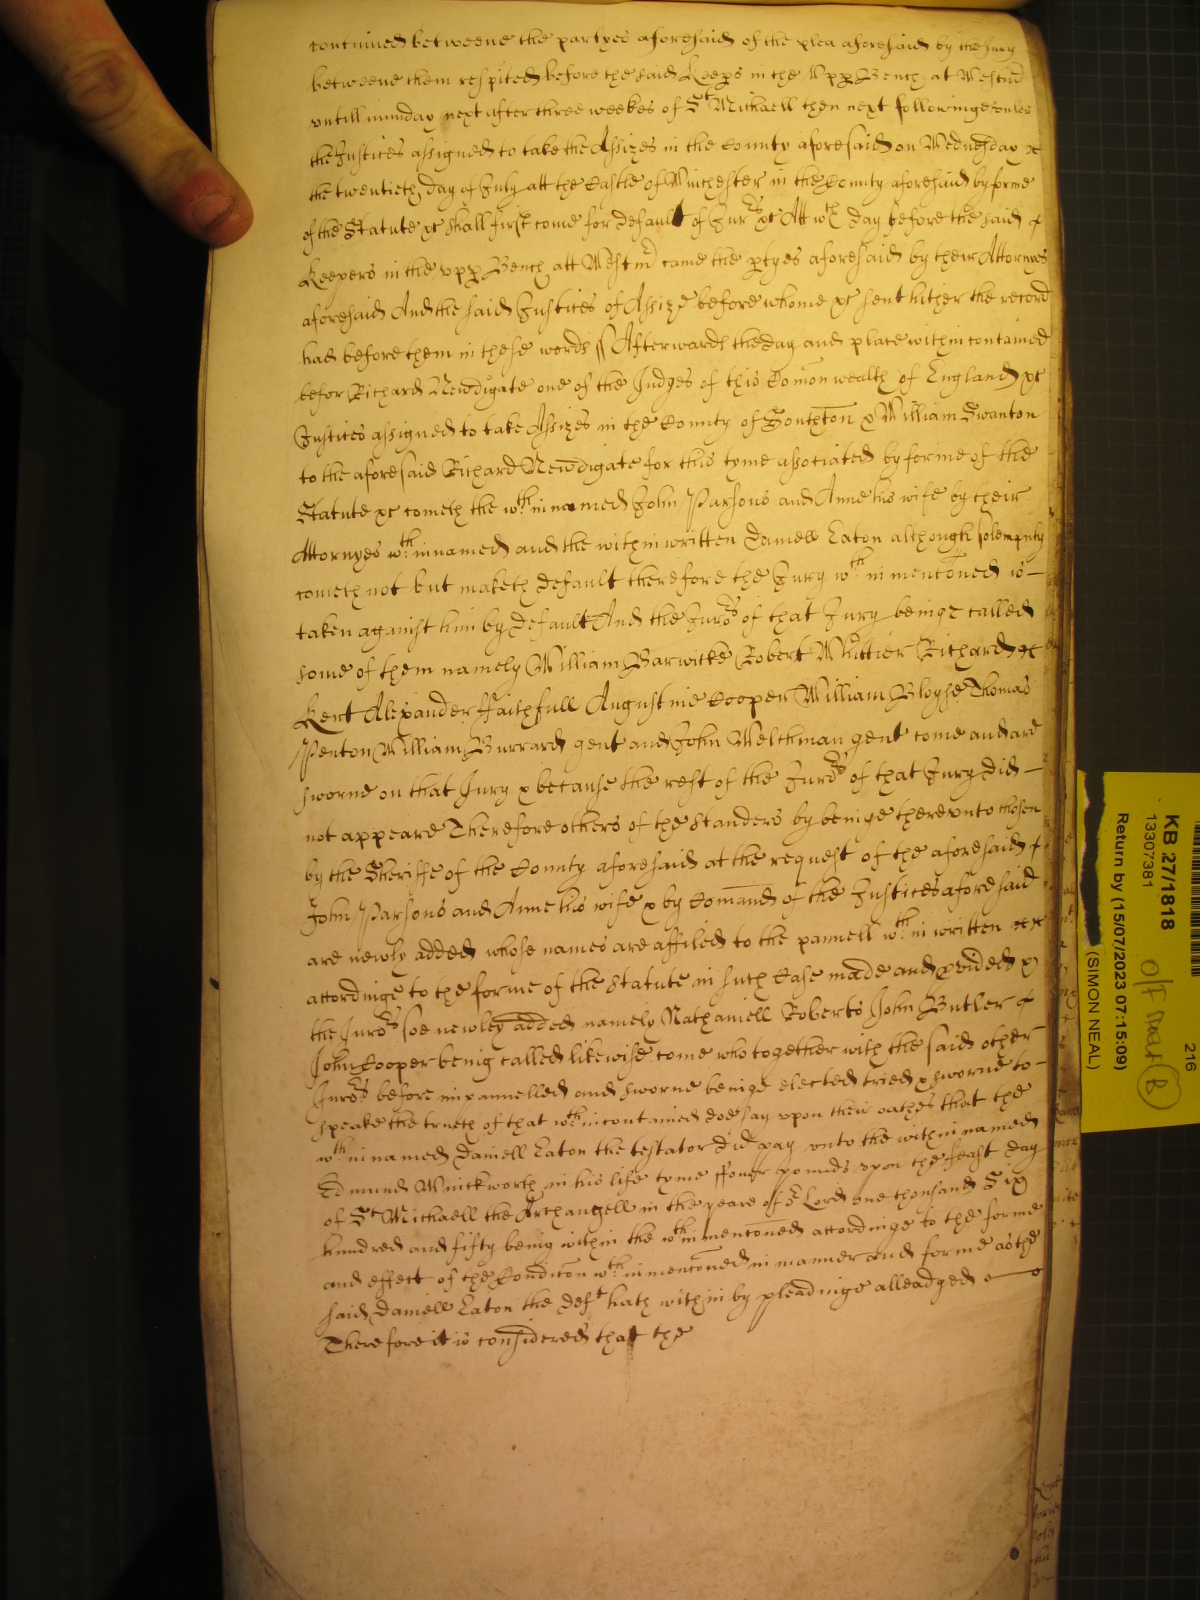 continued betweene the partyes aforesaid of the plea aforesaid by the Jury
betweene them respited before the said Keeps in the Vpp Bench at Westm
vntill munday next after three weekes of St Michaell then next followinge vnles
the Justices assigned to take the Assizes in the County aforesaid on Wednesday xc
the twentieth day of July att the Castle of Winchester in the County aforesaid by forme
of the Statute xc shall first come for default of Jurrs xc Att wch day before the said
Keepers in the vpp Bench att Westm came the ptyes aforesaid by their Attornyes
aforesaid And the said Justices of Assize before whome xc sent hither the record
had before them in these words ss Afterwards the day and place within contained
befor Richard Newdigate one of the Judges of this Comon wealth of England xc
Justices assigned to take Assizes in the County of Southton & William Swanton
to the aforesaid Richard Newdigate for this tyme associated by forme of the
Statute xc cometh the wthin named John Parsons and Anne his wife by their
Attornyes wthin named and the within written Daniell Eaton although solempnly
cometh not but maketh default therefore the Jury wthin mentoned is
taken against him by default And the Jurors of that Jury beinge called
some of them namely William Barwicke Robert Richard xc
Kent Alexander ffaithfull Augustine Cooper William Thomas
Penton William Burrard gent and John Welchman gent come and are
sworne on that Jury & because the rest of the Jurors of that Jury did
not appeare Therefore others of the standers by beinge therevnto chosen
by the Sheriffe of the County aforesaid at the request of the aforesaid
John Parsons and Anne his wife & by Comand of the Justices aforesaid
are newly added whose names are affiled to the pannell wthin written
accordinge to the forme of the Statute in such Case made and pvided &
the Jurors soe newley added namely Nathaniell Roberts John Butler &
John Cooper being called likewise come who together with the said other
Jurors before impannelled and sworne beinge elected tried & sworne to
speake the trueth of that wthin contained doe say vpon their oathes that the
wthin named Daniell Eaton the testator did pay vnto the within named
Edmund Winckworth in his life tyme ffower pounds vpon the feast day
of St Michaell the Archangell in the yeare of or Lord one thousand Six
hundred and fifty being within the wthin mentoned accordinge to the forme
and effect of the Condicon wthin mentoned in manner and forme as the
said Daniell Eaton the Deft hath within by pleadinge alleadged
Therefore it is considered that the
KB 27/1818
13307381
Return by (15/07/2023 07:15:09)
(SIMON NEAL)
216